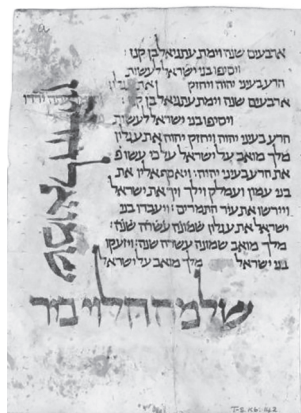 ארבעים שנה וימת עתניאל בן קנז:
ויסיפו בני ישראל לעשות
הרע בעיני יהוה ויחזק את עגלון
ארבעים שנה וימת עתניאל בן קנז:
ויסיפו בני ישראל לעשות
הרע בעיני יהוה ויחזק יהוה את עגלון
מלך מואב על ישראל על כי עשו
את הרע בעיני יהוה: ויאסף אליו את
בני עמון ועמלק וילך ויך את ישראל
ויירשו את עיר התמרים: ויעבדו בני
ישראל את עגלון שמונה עשרה שנה:
מלך מואב שמונה עשרה שנה: ויזעקו
בני ישראל מלך מואב על ישראל
שלמה הלוי בר
T-S K6.162